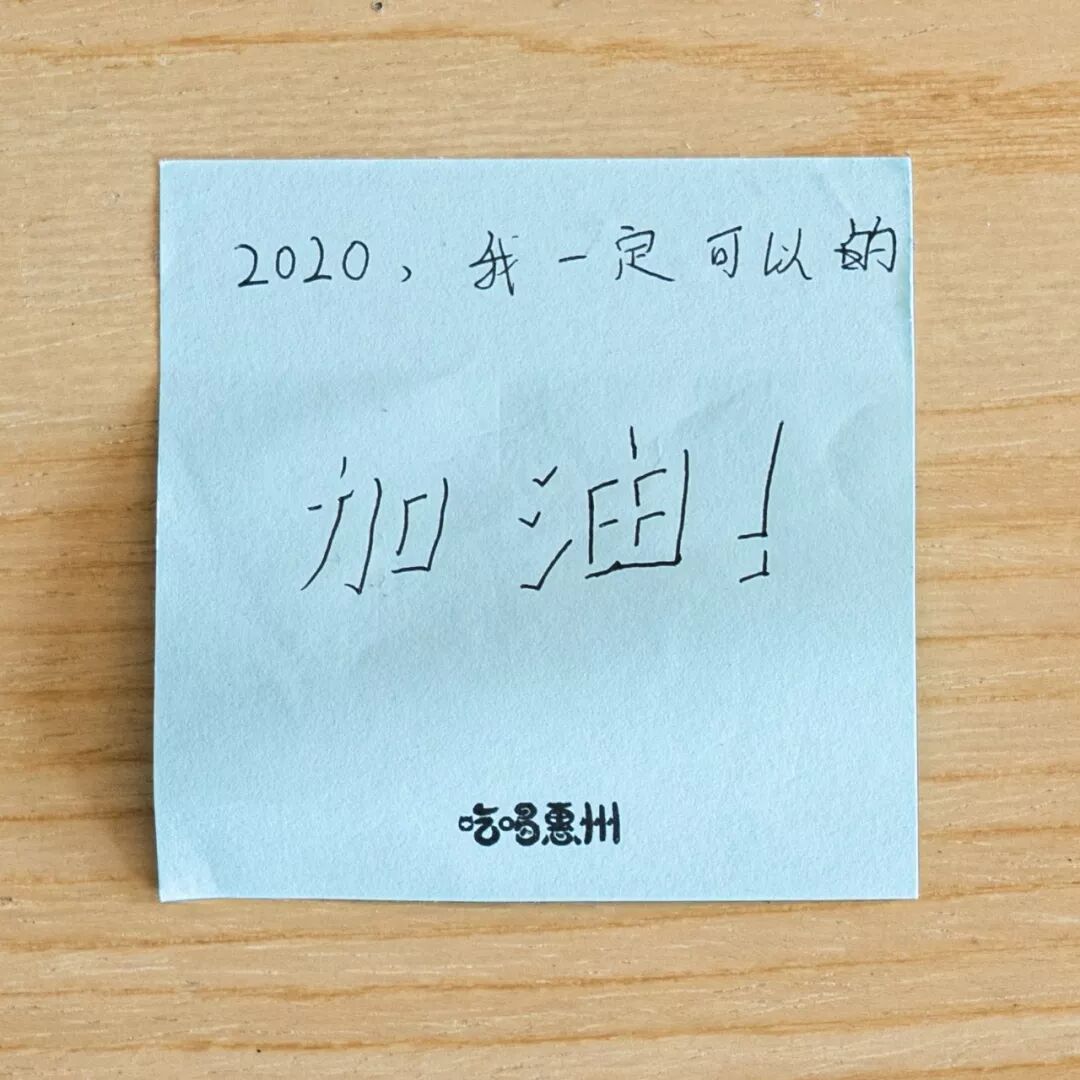 2020，我一定可以的
加油！
吃喝惠州